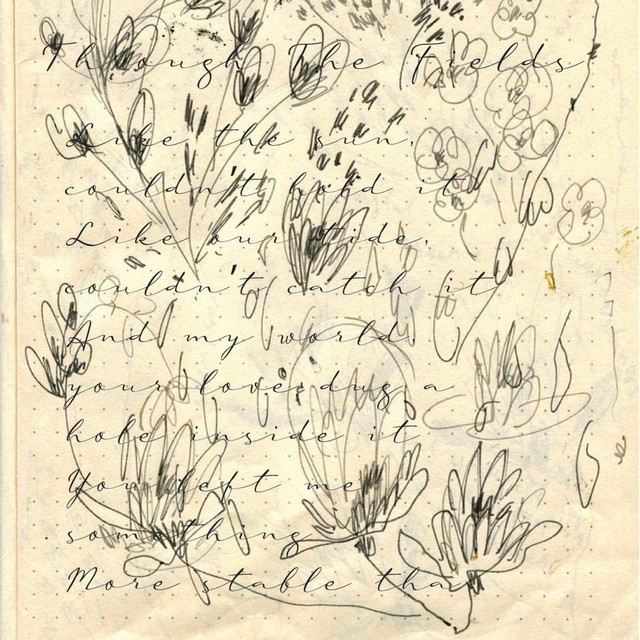 Through The Fields
Like the sun,
couldn't hold it
Like our tide,
couldn't catch it
And my world,
your love dug a
hole inside it
You left me
something
More stable tha